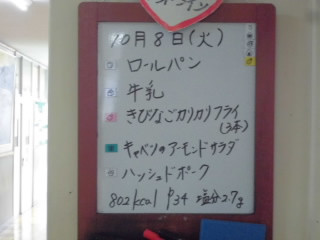 10月8日(火)
ロールパン
牛乳
きびなごカリカリフライ
(3本)
キャベツのアーモンドサラダ
ハッシュドポーク
802kcal P34 塩分2.7g